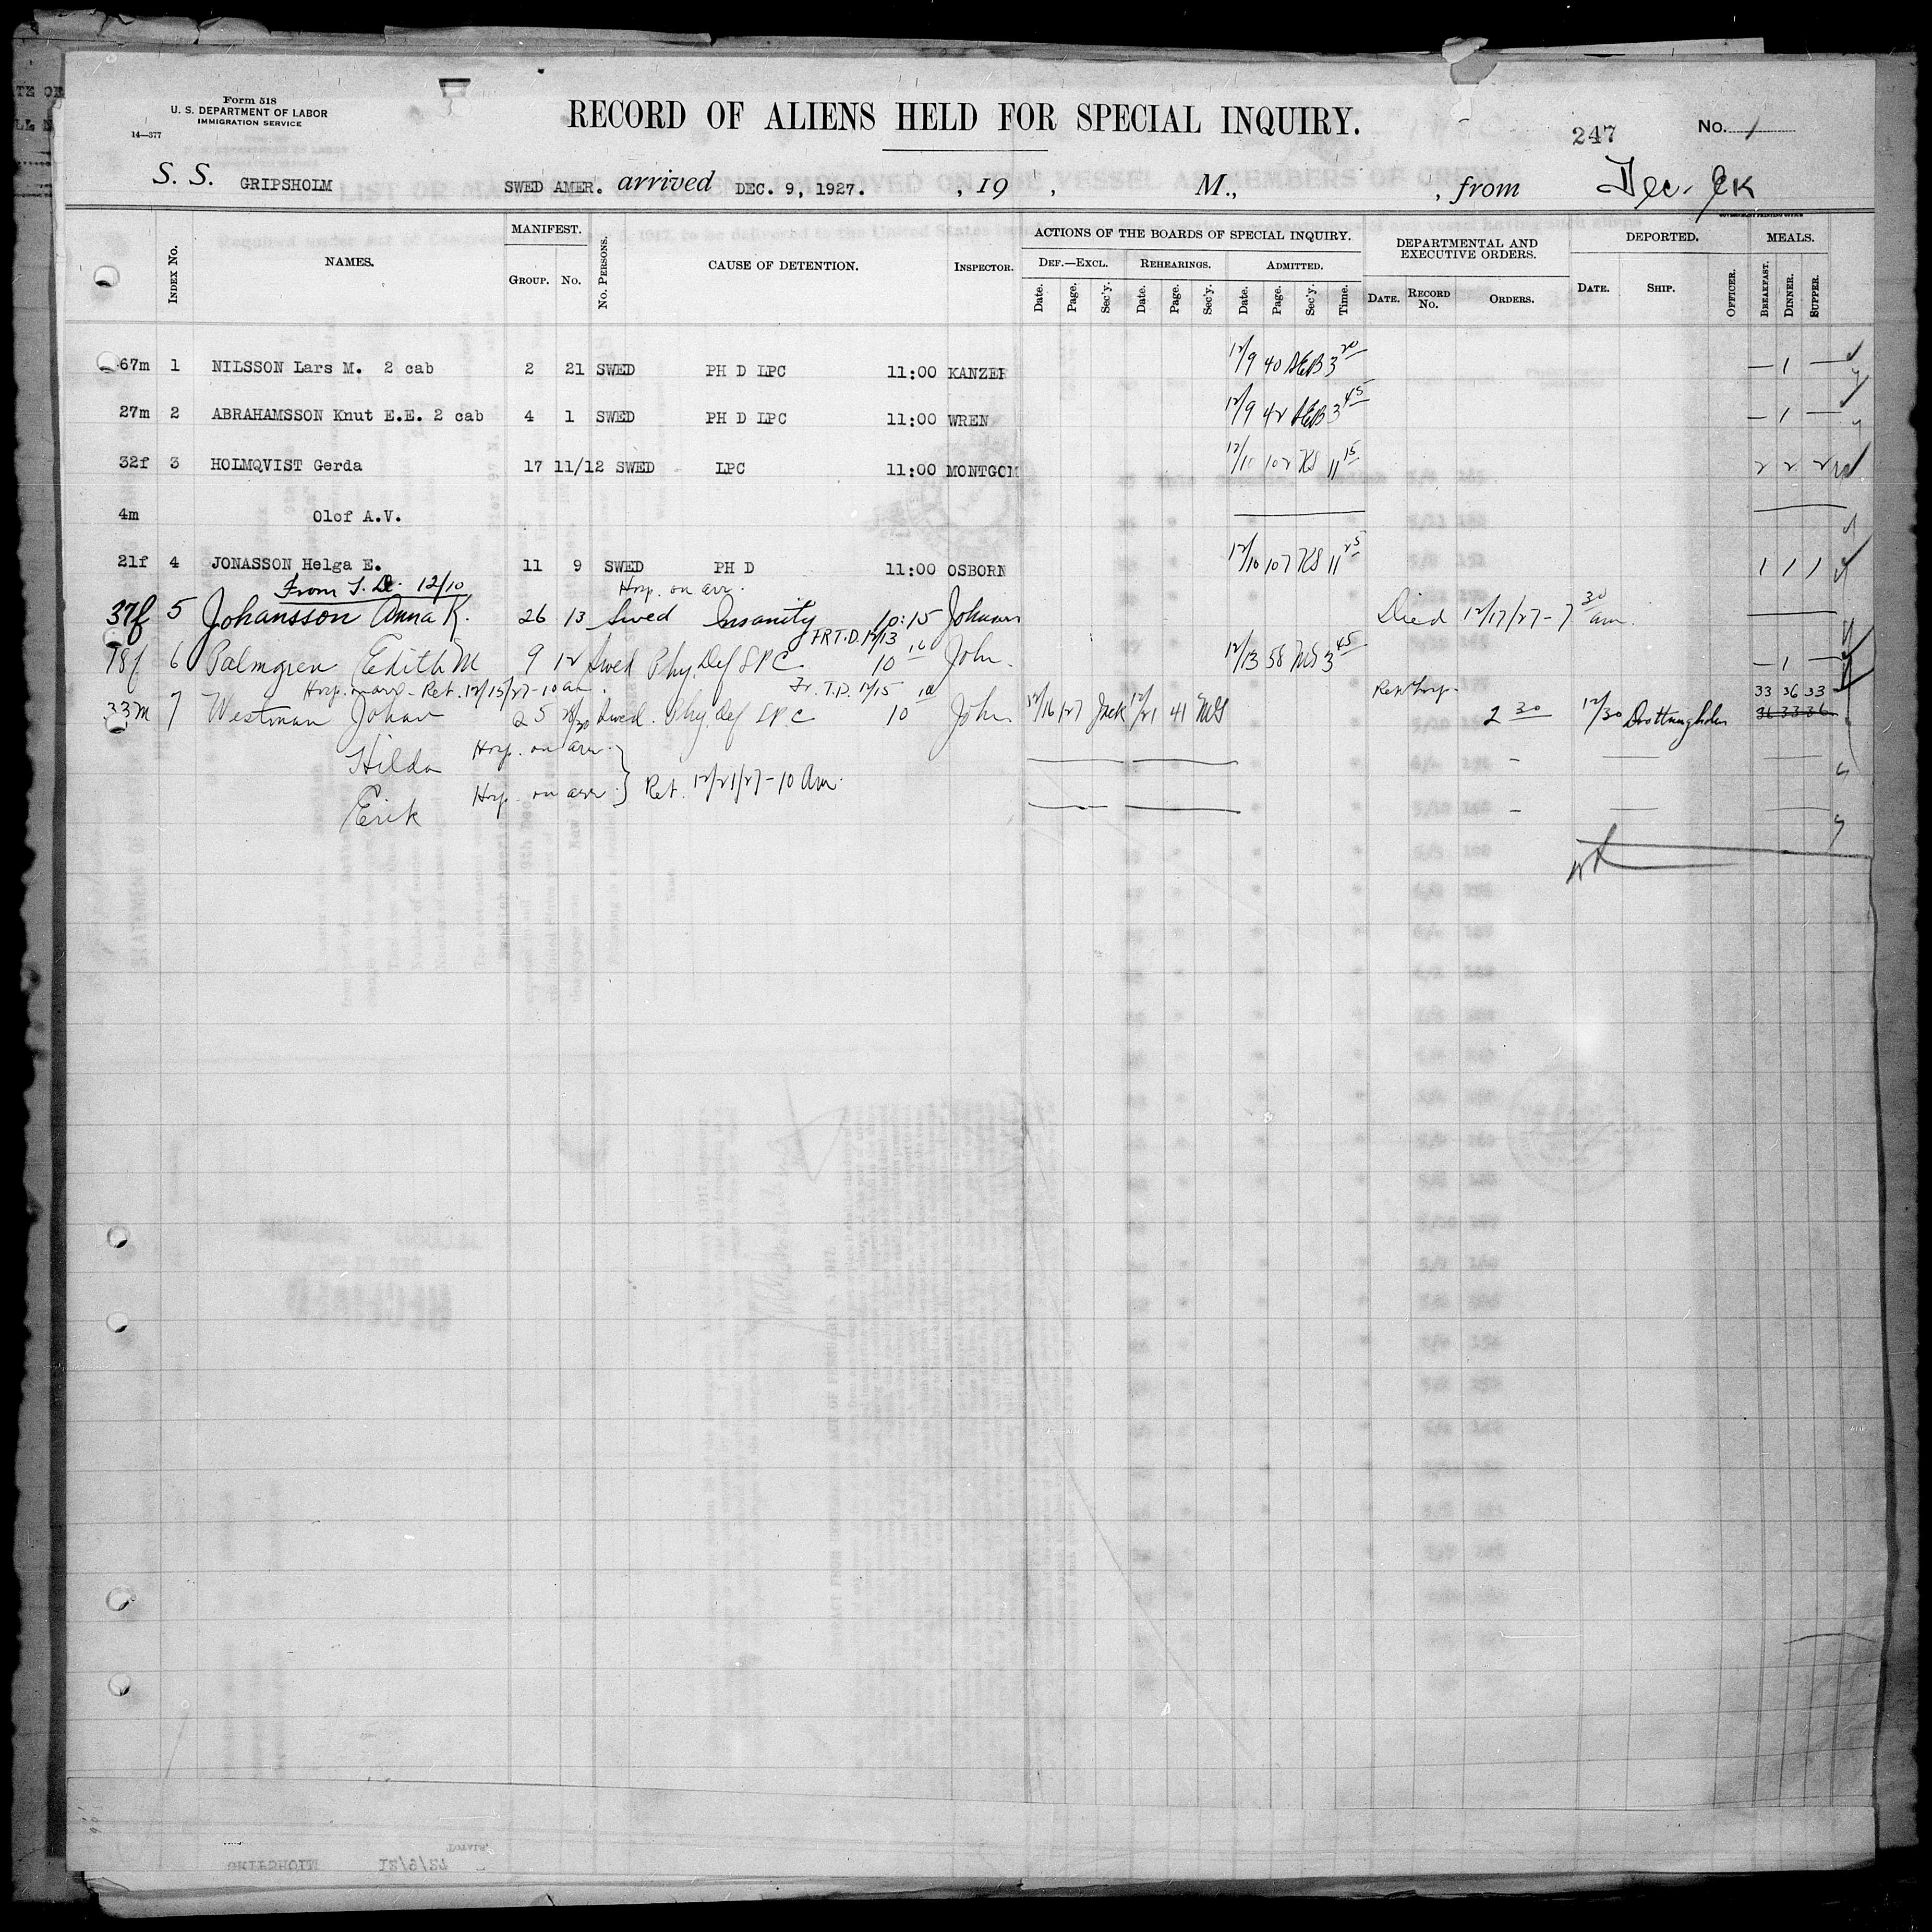 Form 518
U. S. DEPARTMENT OF LABOR
IMMIGRATION SERVICE
14—377
RECORD OF ALIENS HELD FOR SPECIAL INQUIRY.
247 No. 1
S. S. GRIPSHOLM SWED AMER. arrived DEC. 9, 1927. , 19 , M., , from
GOVERNMENT PRINTING OFFICE
INDEX No. NAMES. MANIFEST. GROUP. No. No. PERSONS. CAUSE OF DETENTION. INSPECTOR. ACTIONS OF THE BOARDS OF SPECIAL INQUIRY. DEF.—EXCL. REHEARINGS. ADMITTED. DEPARTMENTAL AND EXECUTIVE ORDERS. DEPORTED. MEALS.
Date. Page. Sec'y. Date. Page. Sec'y. Date. Page. Sec'y. Time. DATE. RECORD No. ORDERS. DATE. SHIP. OFFICER. BREAKFAST. DINNER. SUPPER.
67m 1 NILSSON Lars M. 2 cab 2 21 SWED PH D LPC 11:00 KANZER 12/9 40 AEB 3 20 — 1 —
27m 2 ABRAHAMSSON Knut E.E. 2 cab 4 1 SWED PH D LPC 11:00 WREN 12/9 42 AEB 3 45 — 1 —
32f 3 HOLMQVIST Gerda 17 11/12 SWED LPC 11:00 MONTGOM 12/10 102 KS 11 15 2 2 2
4m Olof A.V.
21f 4 JONASSON Helga E. 11 9 SWED PH D 11:00 OSBORN 12/10 107 KS 11 25 1 1 1
From T. D. 12/10 Hosp. on arr.
37f 5 Johansson Anna K. 26 13 Swed Insanity 10:15 Johnson Died 12/17/27 - 7 30 am.
FR T.D. 12/13
18f 6 Palmgren Edith M 9 12 Swed Phy. Def LPC 10 John. 12/13 58 MS 3 45 — 1 —
Hosp. on arr - Ret. 12/15/27 - 10 am. Fr. T.D. 12/15 Ret Hosp. 33 36 33
33m 7 Westman Johan 25 Swed. Phy. Def LPC 10 John 12/16 27 Jack 12/21 41 MS 2 30 12/30 Drottningholm 36 33 36
Hilda Hosp. on arr.
Erik Hosp. on arr. } Ret. 12/21/27 - 10 Am.